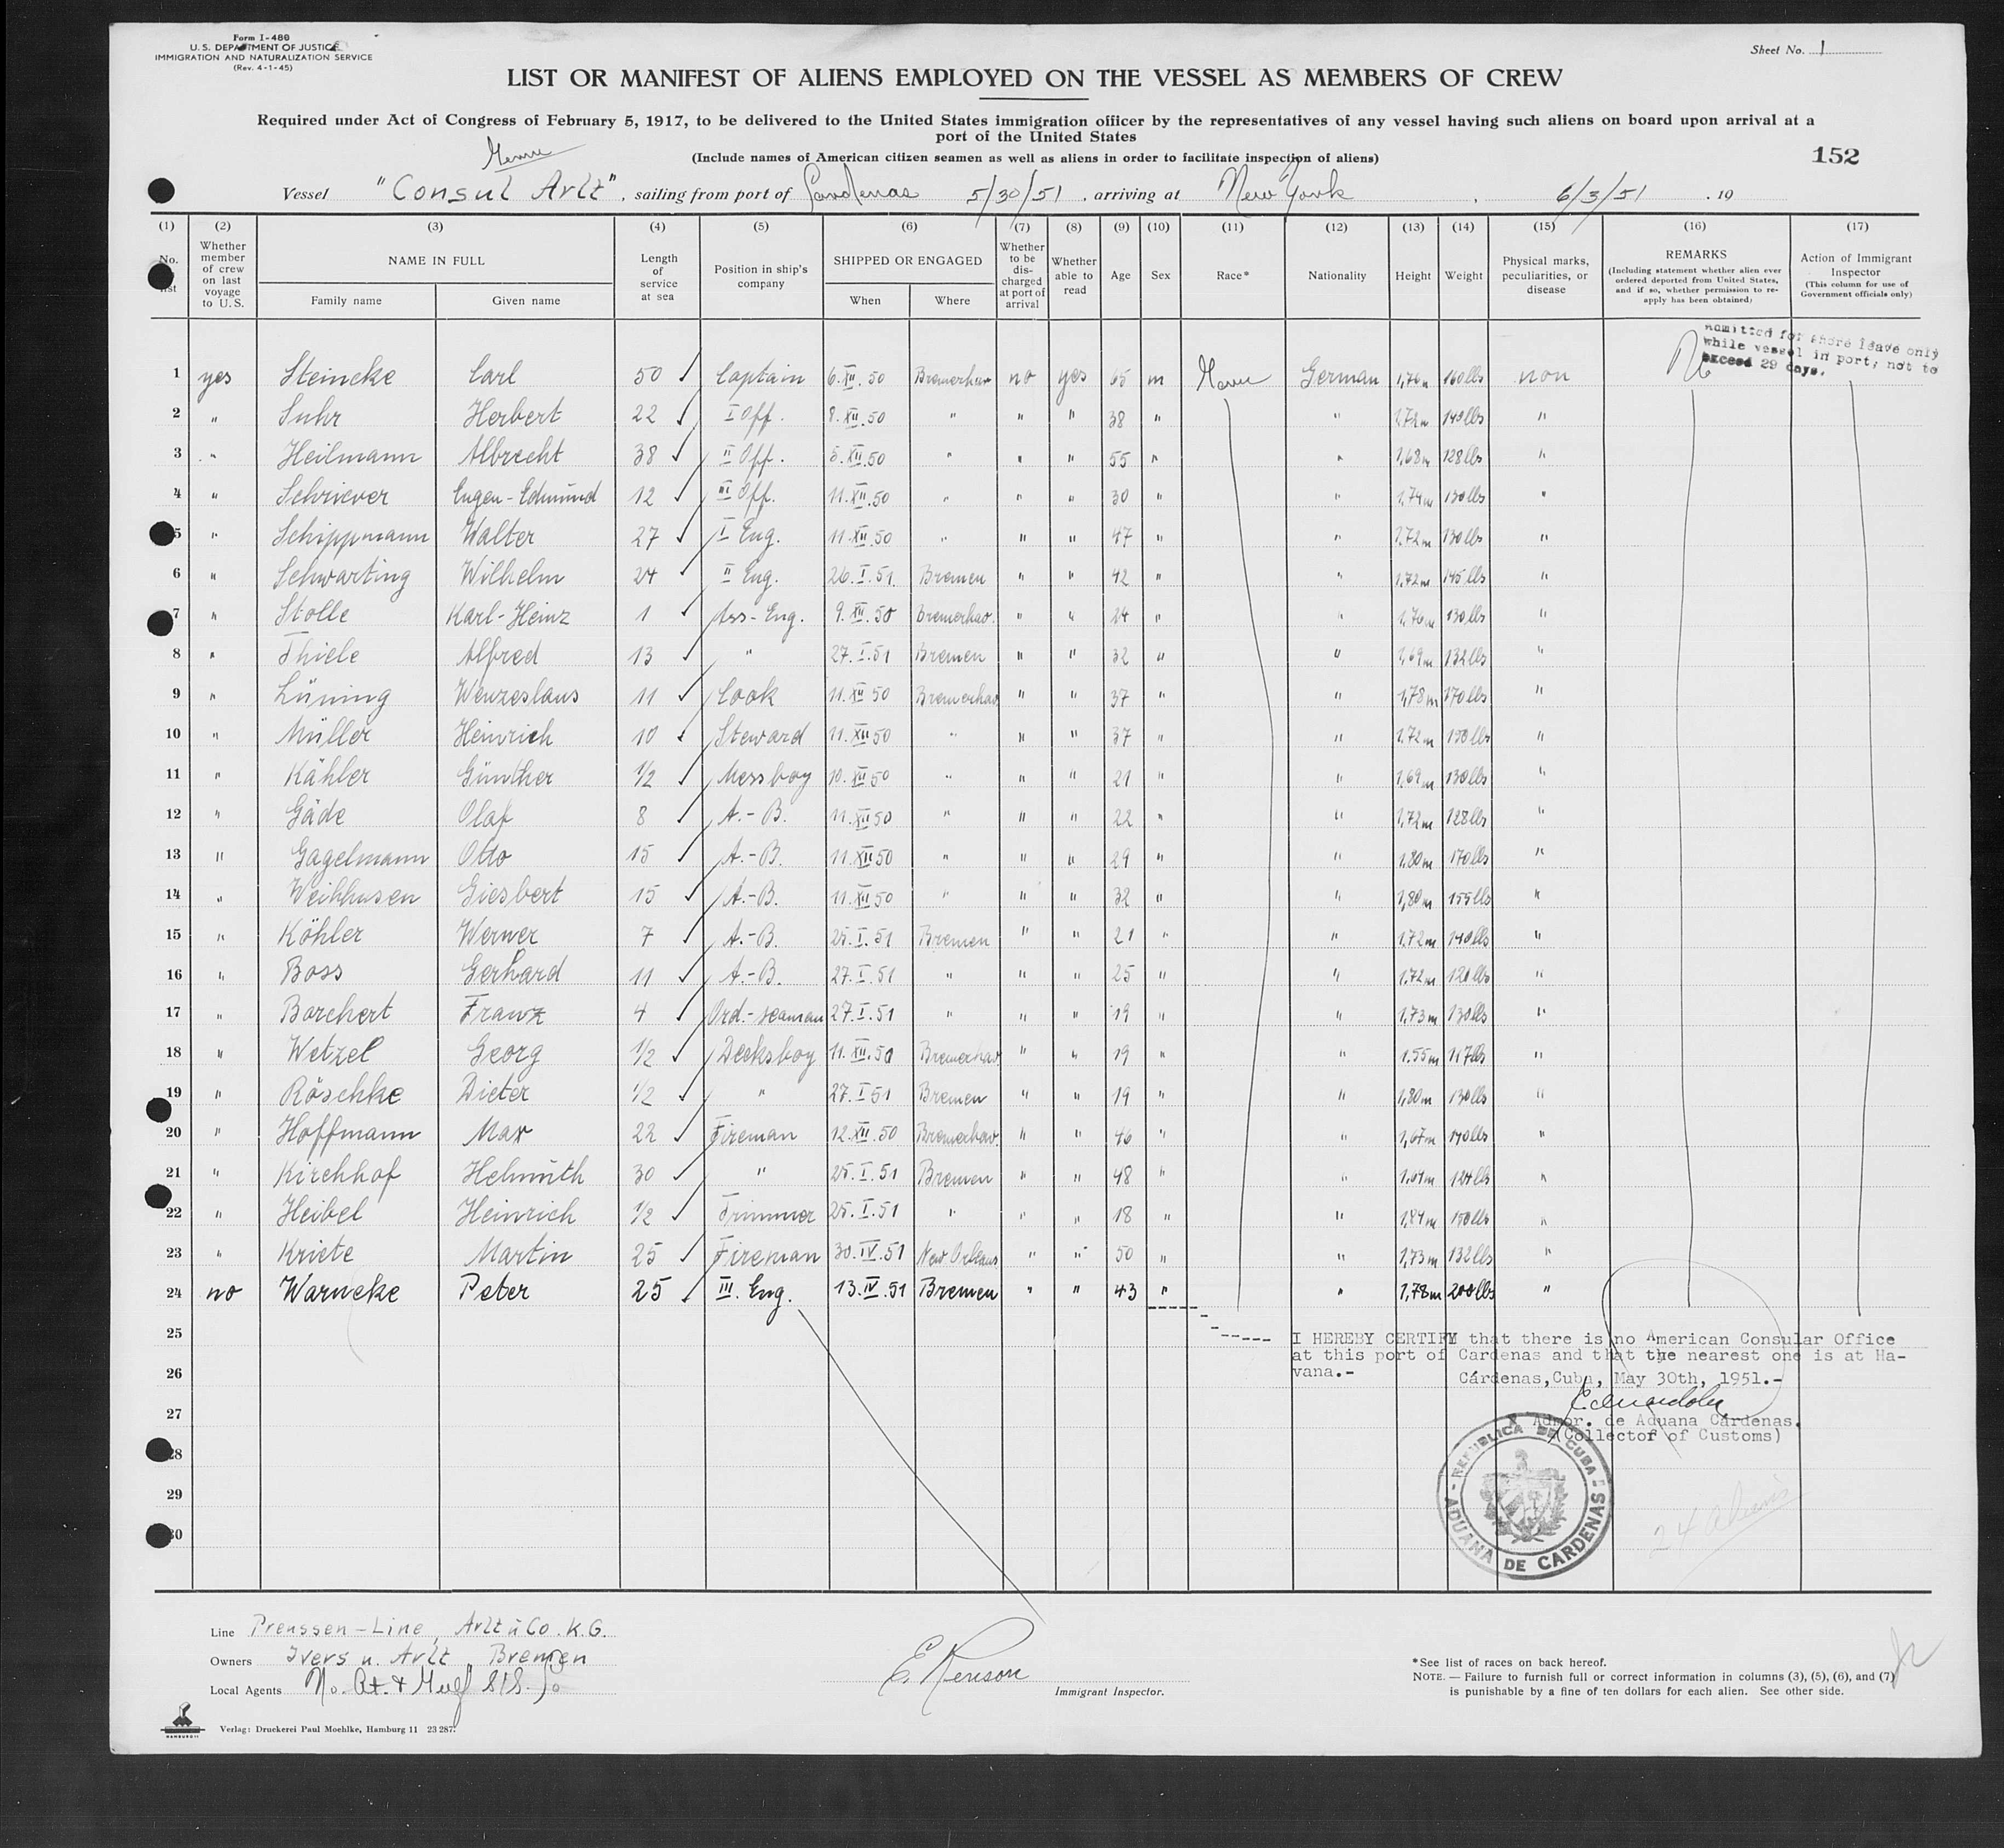 Form I-480
U. S. DEPARTMENT OF JUSTICE
IMMIGRATION AND NATURALIZATION SERVICE
(Rev. 4-1-45)
Sheet No. 1
LIST OR MANIFEST OF ALIENS EMPLOYED ON THE VESSEL AS MEMBERS OF CREW
Required under Act of Congress of February 5, 1917, to be delivered to the United States immigration officer by the representatives of any vessel having such aliens on board upon arrival at a
port of the United States
(Include names of American citizen seamen as well as aliens in order to facilitate inspection of aliens)
152
Germ
Vessel "Consul Arlt", sailing from port of Cardenas 5/30/51, arriving at New York, 6/3/51, 19
(1) (2) (3) (4) (5) (6) (7) (8) (9) (10) (11) (12) (13) (14) (15) (16) (17)
No. list
Whether member of crew on last voyage to U. S.
NAME IN FULL
Family name Given name
Length of service at sea
Position in ship's company
SHIPPED OR ENGAGED
When Where
Whether to be discharged at port of arrival
Whether able to read
Age
Sex
Race*
Nationality
Height
Weight
Physical marks, peculiarities, or disease
REMARKS
(Including statement whether alien ever ordered deported from United States, and if so, whether permission to re-apply has been obtained)
Action of Immigrant Inspector
(This column for use of Government officials only)
Admitted for shore leave only
while vessel in port, not to
exceed 29 days.
1 yes Steincke Carl 50 ✓ Captain 6.XII.50 Bremerhav no yes 65 m Germ German 1,76m 160lbs non
2 " Suhr Herbert 22 ✓ I Off. 8.XII.50 " " " 38 " " 1,72m 140lbs "
3 " Heilmann Albrecht 38 ✓ II Off. 5.XII.50 " " " 55 " " 1,68m 128lbs "
4 " Schriever Eugen-Edmund 12 ✓ III Off. 11.XII.50 " " " 30 " " 1,74m 130lbs "
5 " Schippmann Walter 27 ✓ I Eng. 11.XII.50 " " " 47 " " 1,72m 130lbs "
6 " Schwarting Wilhelm 24 ✓ II Eng. 26.I.51 Bremen " " 42 " " 1,72m 145lbs "
7 " Stolle Karl-Heinz 1 ✓ Ass-Eng. 9.XII.50 Bremerhav. " " 24 " " 1,76m 130lbs "
8 " Thiele Alfred 13 ✓ " 27.I.51 Bremen " " 32 " " 1,69m 132lbs "
9 " Lüning Wenzeslaus 11 ✓ Cook 11.XII 50 Bremerhav " " 37 " " 1,78m 170lbs "
10 " Müller Heinrich 10 ✓ Steward 11.XII 50 " " " 37 " " 1,72m 150lbs "
11 " Kähler Günther 1/2 ✓ Messboy 10.XII 50 " " " 21 " " 1,69m 130lbs "
12 " Gäde Olaf 8 ✓ A.-B. 11.XII 50 " " " 22 " " 1,72m 128lbs "
13 " Gagelmann Otto 15 ✓ A.-B. 11.XII 50 " " " 29 " " 1,80m 170lbs "
14 " Weihhusen Giesbert 15 ✓ A.-B. 11.XII 50 " " " 32 " " 1,80m 155lbs "
15 " Köhler Werner 7 ✓ A.-B. 25.I.51 Bremen " " 21 " " 1,72m 140lbs "
16 " Boss Gerhard 11 ✓ A.-B. 27.I.51 " " " 25 " " 1,72m 120lbs "
17 " Borchert Franz 4 ✓ Ord.-seaman 27.I.51 " " " 19 " " 1,73m 130lbs "
18 " Wetzel Georg 1/2 ✓ Decksboy 11.XII.50 Bremerhav " " 19 " " 1.55m 117lbs "
19 " Röschke Dieter 1/2 ✓ " 27.I 51 Bremen " " 19 " " 1,80m 130lbs "
20 " Hoffmann Max 22 ✓ Fireman 12.XII.50 Bremerhav. " " 46 " " 1,67m 140lbs "
21 " Kirchhof Helmuth 30 ✓ " 25.I.51 Bremen " " 48 " " 124lbs "
22 " Heibel Heinrich 1/2 ✓ Trimmer 25.I.51 " " " 18 " " 1,84m 150lbs "
23 " Kriete Martin 25 ✓ Fireman 30.IV.51 New Orleans " " 50 " " 1,73m 132lbs "
24 no Warneke Peter 25 ✓ III. Eng. 13.IV.51 Bremen " " 43 " " 1,78m 200lbs "
25
26
27
28
29
30
I HEREBY CERTIFY that there is no American Consular Office
at this port of Cardenas and that the nearest one is at Ha-
vana.- Cárdenas,Cuba, May 30th, 1951.-
Admor. de Aduana Cárdenas.
(Collector of Customs)
REPUBLICA DE CUBA
ADUANA DE CARDENAS
24 aliens
Line Preussen-Line, Arlt u Co. K.G.
Owners Ivers u. Arlt, Bremen
Local Agents No. At. & Gulf S/S. Co
E. Kenison
Immigrant Inspector.
*See list of races on back hereof.
NOTE.—Failure to furnish full or correct information in columns (3), (5), (6), and (7)
is punishable by a fine of ten dollars for each alien. See other side.
HAMBURG 11
Verlag: Druckerei Paul Moehlke, Hamburg 11 23 287.